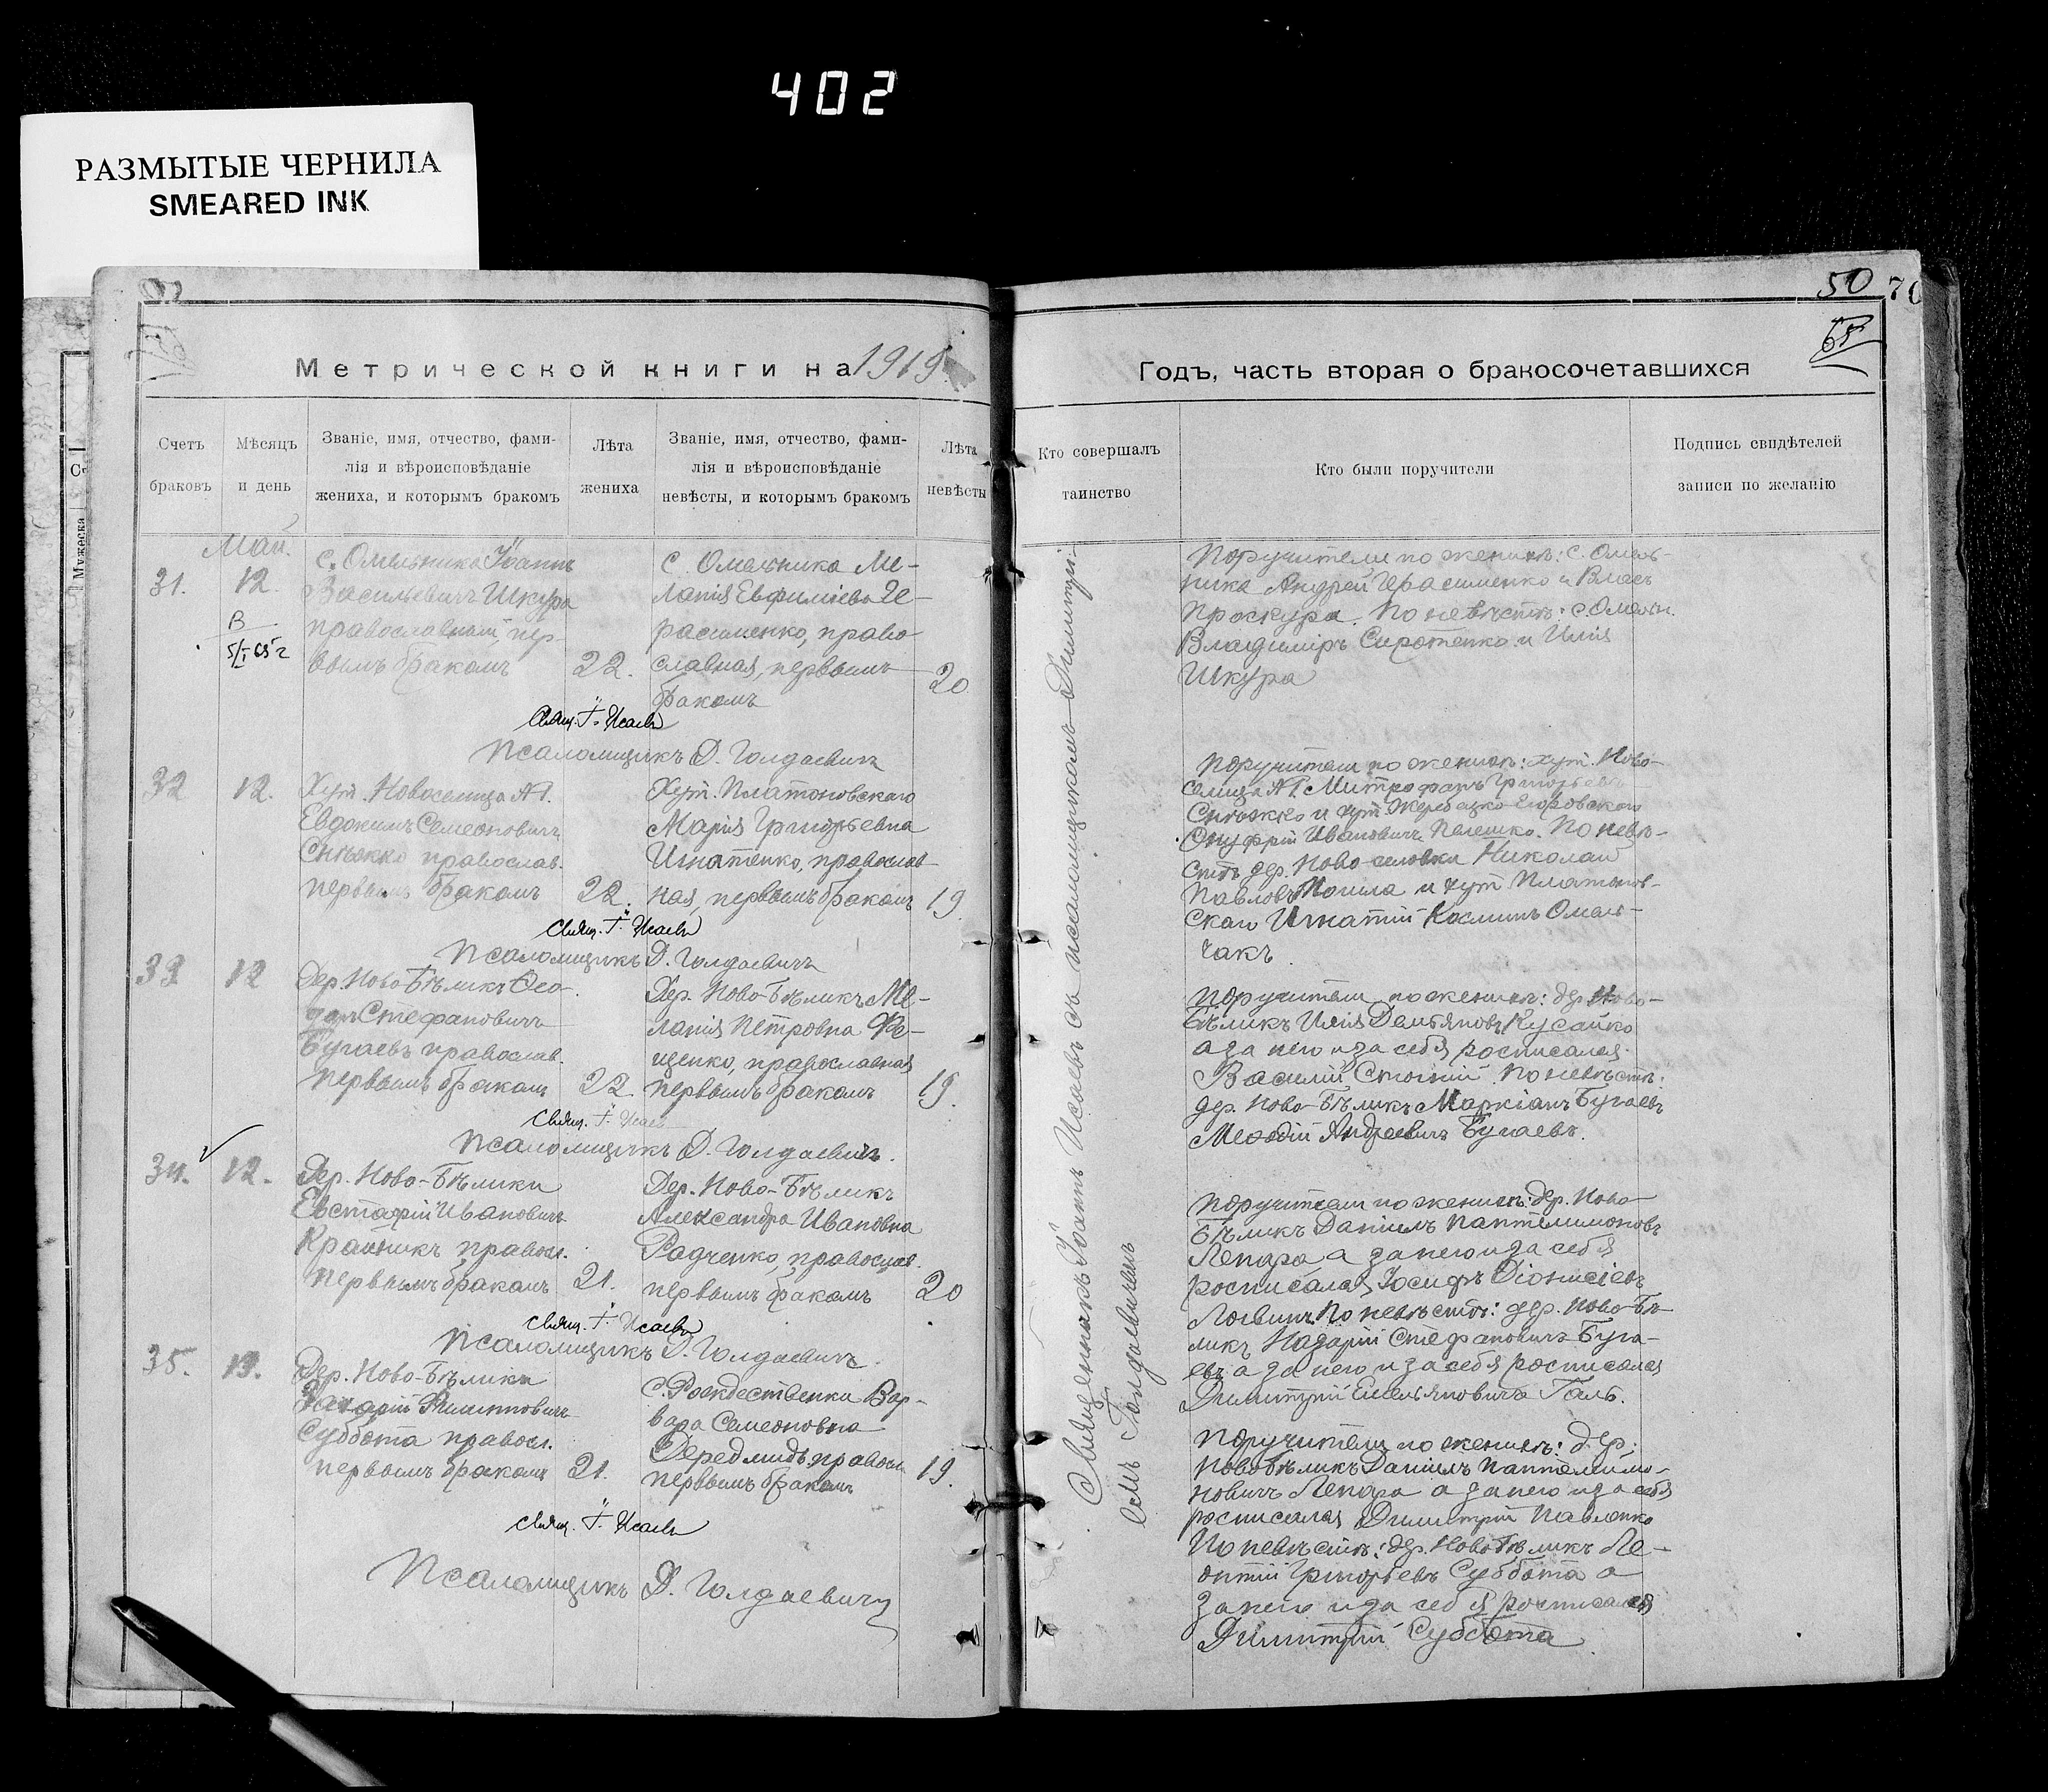 402
РАЗМЫТЫЕ ЧЕРНИЛА
SMEARED INK
Метрической книги на 1919
Счетъ браковъ
Мѣсяцъ и день
Званіе, имя, отчество, фами-
лія и вѣроисповѣданіе
жениха, и которымъ бракомъ
Лѣта жениха
Званіе, имя, отчество, фами-
лія и вѣроисповѣданіе
невѣсты, и которымъ бракомъ
Лѣта невѣсты
31.
Май.
12.
В
5/I 65 г
с. Омельника Іоаннъ
Васильевичъ Шкура
православный, пер-
вымъ бракомъ
22.
с. Омельника Ме-
ланія Евфиміева Ге-
расименко, право-
славная, первымъ
бракомъ
20
Свящ. І. Исаевъ
Псаломщикъ Д. Голдаевичъ
32
12.
Хут. Новоселица
Евдокимъ Семеоновичъ
Снѣжко православ.
первымъ бракомъ
22.
Хут. Платоновскаго
Марія Григорьевна
Игнатенко, православ-
ная, первымъ бракомъ
19.
Свящ. І. Исаевъ
Псаломщикъ Д. Голдаевичъ
33
12
Дер. Ново-Бѣликъ Ѳео-
доръ Стефановичъ
Бугаевъ православ.
первымъ бракомъ
22.
Дер. Ново-Бѣликъ Ме-
ланія Петровна Фе-
щенко, православная
первымъ бракомъ
19.
Свящ. І. Исаевъ
Псаломщикъ Д. Голдаевичъ.
34.
12.
Дер. Ново-Бѣлики
Евстафій Ивановичъ
правосл.
первымъ бракомъ
21.
Дер. Ново-Бѣликъ
Александра Ивановна
Радченко, православ.
первымъ бракомъ
20
Свящ. І. Исаевъ
Псаломщикъ Д. Голдаевичъ.
35.
13.
Дер. Ново-Бѣлики
Захарій Филипповичъ
Суббота правосл.
первымъ бракомъ
21.
с. Рождественки Вар-
вара Семеоновна
правосл
первымъ бракомъ
19.
Свящ. І. Исаевъ
Псаломщикъ Д. Голдаевичъ
50
70
65
Годъ, часть вторая о бракосочетавшихся
Кто совершалъ таинство
Кто были поручители
Подпись свидѣтелей
записи по желанію
Священникъ Іоаннъ Исаевъ съ псаломщикомъ Димитрі-
емъ Голдаевичемъ
Поручители по женихѣ: с. Омель-
ника Андрей Герасименко и Власъ
Проскура. По невѣстѣ: с. Омельн.
Владиміръ Сиротенко и Илія
Шкура
Поручители по женихѣ: хут. Ново-
селица Митрофанъ Григорьевъ
Снѣжко и хут.
Онуфрій Ивановичъ Пелешко. По невѣ-
стѣ дер. Ново-селовки Николай
Павловъ и хут Платонов-
скаго Игнатій Космичъ Омель-
чакъ.
Поручители по женихѣ: дер. Ново-
Бѣликъ Илія Демьяновъ Кусайко
а за него и за себя росписался
Василій По невѣстѣ:
дер. Ново-Бѣликъ Маркіанъ Бугаевъ
Меѳодій Андреевичъ Бугаевъ.
Поручители по женихѣ: дер. Ново-
Бѣликъ Даніилъ Пантелимоновъ
Лепара а за него и за себя
росписался Іосифъ Діонисіевъ
Логвинъ По невѣстѣ: дер. Ново-Бѣ-
ликъ Назарій Стефановичъ Буга-
евъ а за него и за себя росписался
Димитрій Емельяновичъ Галь.
Поручители по женихѣ: дер.
Ново Бѣликъ Даніилъ Пантелимо-
новичъ Лепара а за него и за себя
росписался Димитрій Павленко
По невѣстѣ: дер. Ново Бѣликъ Ле-
онтій Григорьевъ Суббота а
за него и за себя росписался
Димитрій Суббота